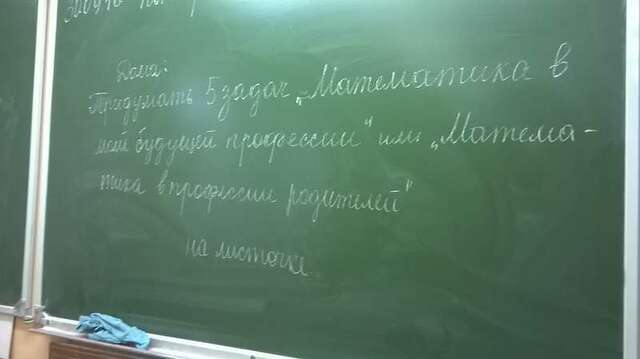 Дома:
Придумать 5 задач „Математика в
моей будущей профессии" или „Матема-
тика в профессии родителей"
на листочке